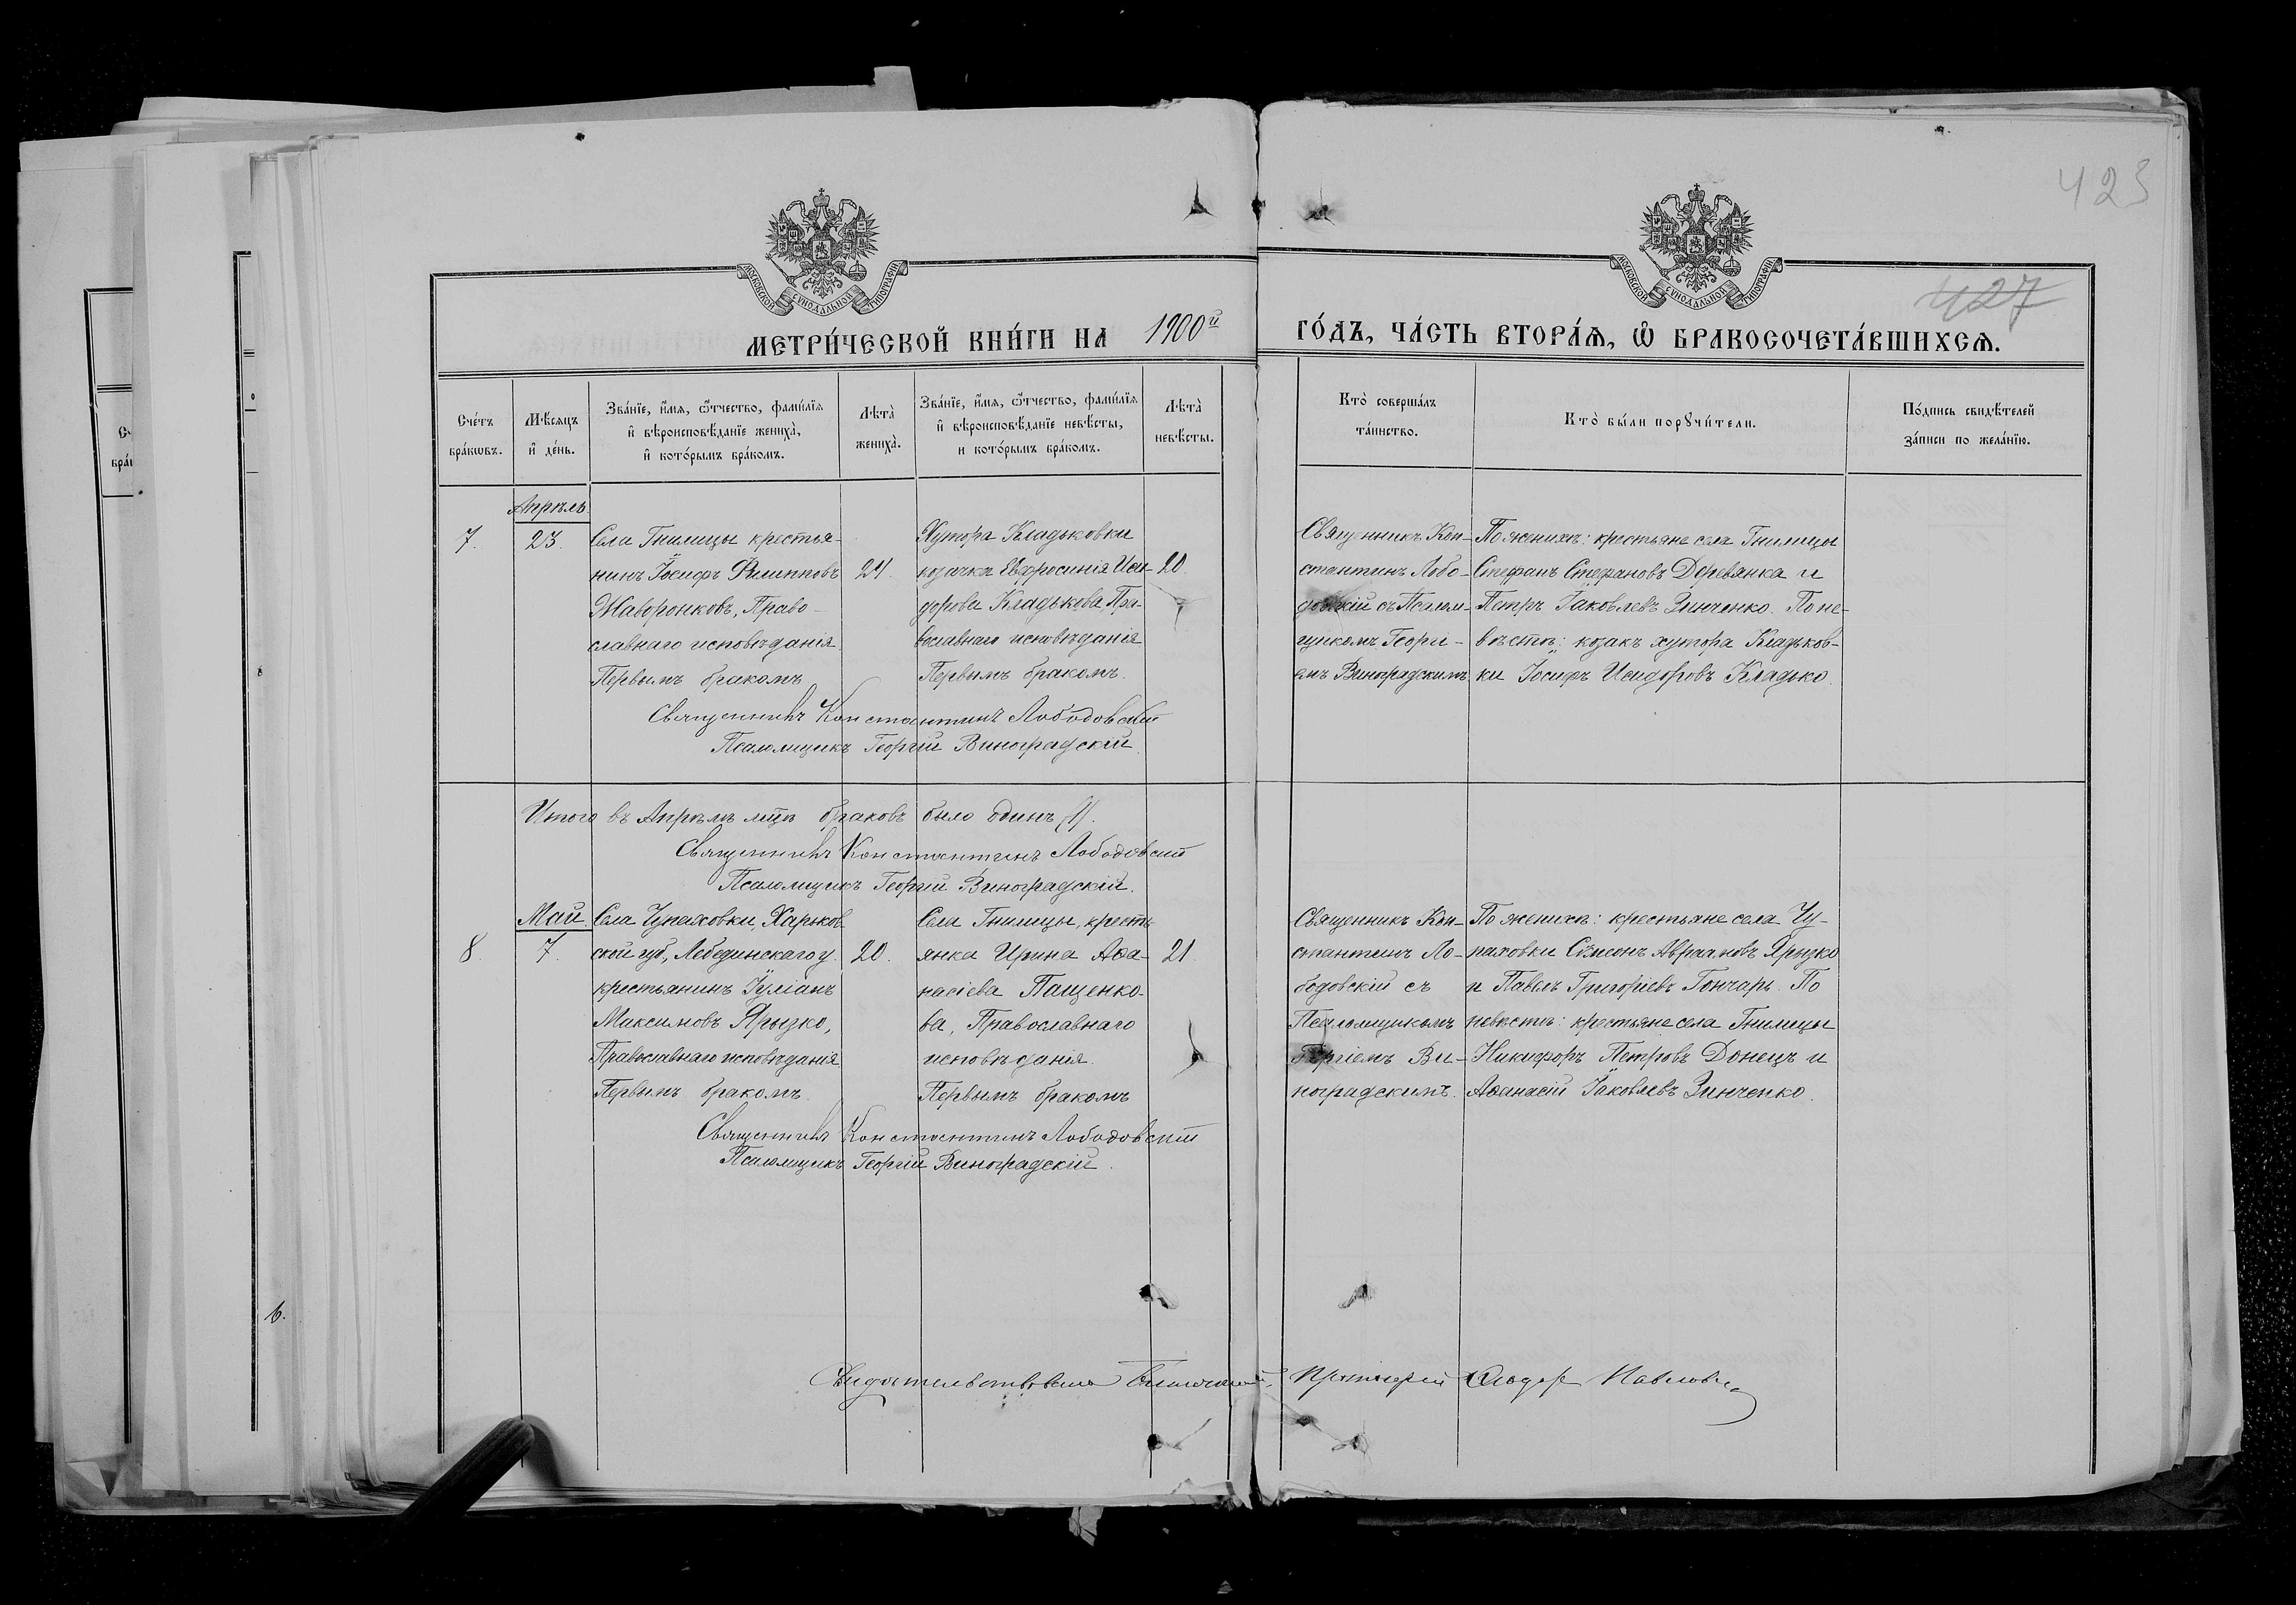 423
427
МОСКОВСКОЙ СѴНОДАЛЬНОЙ ТИПОГРАФІИ
МОСКОВСКОЙ СѴНОДАЛЬНОЙ ТИПОГРАФІИ
МЕТРИ́ЧЕСКОЙ КНИ́ГИ НА 1900й ГО́ДЪ, ЧА́СТЬ ВТОРА́Ѧ, Ѡ҆ БРАКОСОЧЕТА́ВШИХСѦ.
Сче́тъ
бра́кѡвъ.
Мѣ́сѧцъ
и҆ де́нь.
Зва́нїе, и҆́мѧ, ѻ҆́тчество, фами́лїѧ
и҆ вѣроисповѣ́данїе жениха̀,
и҆ кото́рымъ бра́комъ.
Лѣта̀
жениха̀.
Зва́нїе, и҆́мѧ, ѻ҆́тчество, фами́лїѧ
и҆ вѣроисповѣ́данїе невѣ́сты,
и кото́рымъ бра́комъ.
Лѣта̀
невѣ́сты.
Кто̀ соверша́лъ
та́инство.
Кто̀ бы́ли порꙋчи́тели.
По́дпись свидѣ́телей
за́писи по жела́нїю.
Апрѣль
7.
23.
Села Гнилицы крестья-
нинъ Іосифъ Филипповъ
Жаворонковъ, Право-
славнаго исповѣданія.
Первымъ бракомъ
24.
Хутора Кладьковки
козачка Евфросинія Иси-
дорова Кладькова Пра-
вославнаго исповѣданія
Первымъ бракомъ.
20
Священникъ Кон-
стантинъ Лобо-
довскій съ Псалом-
щикомъ Георгі-
емъ Виноградскимъ
По женихѣ: крестьяне села Гнилицы
Стефанъ Стефановъ Деревянка и
Петръ Іаковлевъ Зинченко. По не-
вѣстѣ: козакъ хутора Кладьков-
ки Іосифъ Исидоровъ Кладько.
Священникъ Константинъ Лободовскій
Псаломщикъ Георгій Виноградскій.
Итого въ Апрѣлѣ мцѣ браковъ было одинъ (1).
Священникъ Константинъ Лободовскій
Псаломщикъ Георгій Виноградскій.
Май
8.
7.
Села Чупаховки, Харьков
ской губ, Лебединскаго у.
крестьянинъ Іуліанъ
Максимовъ Ярызко,
Православнаго исповѣданія
Первымъ бракомъ.
20.
Села Гнилицы, кресть
янка Ирина Аѳа-
насіева Пащенко-
ва, Православнаго
исповѣданія.
Первымъ бракомъ
21.
Священникъ Кон-
стантинъ Ло-
бодовскій съ
Псаломщикомъ
Георгіемъ Ви-
ноградскимъ.
По женихѣ: крестьяне села Чу-
паховки Сѵмеонъ Авраамовъ Ярызко
и Павелъ Григоріевъ Гончаръ. По
невѣстѣ: крестьяне села Гнилицы
Никифоръ Петровъ Донецъ и
Аѳанасій Іаковлевъ Зинченко.
Священникъ Константинъ Лободовскій
Псаломщикъ Георгій Виноградскій.
Протоіерей Павловъ
6.